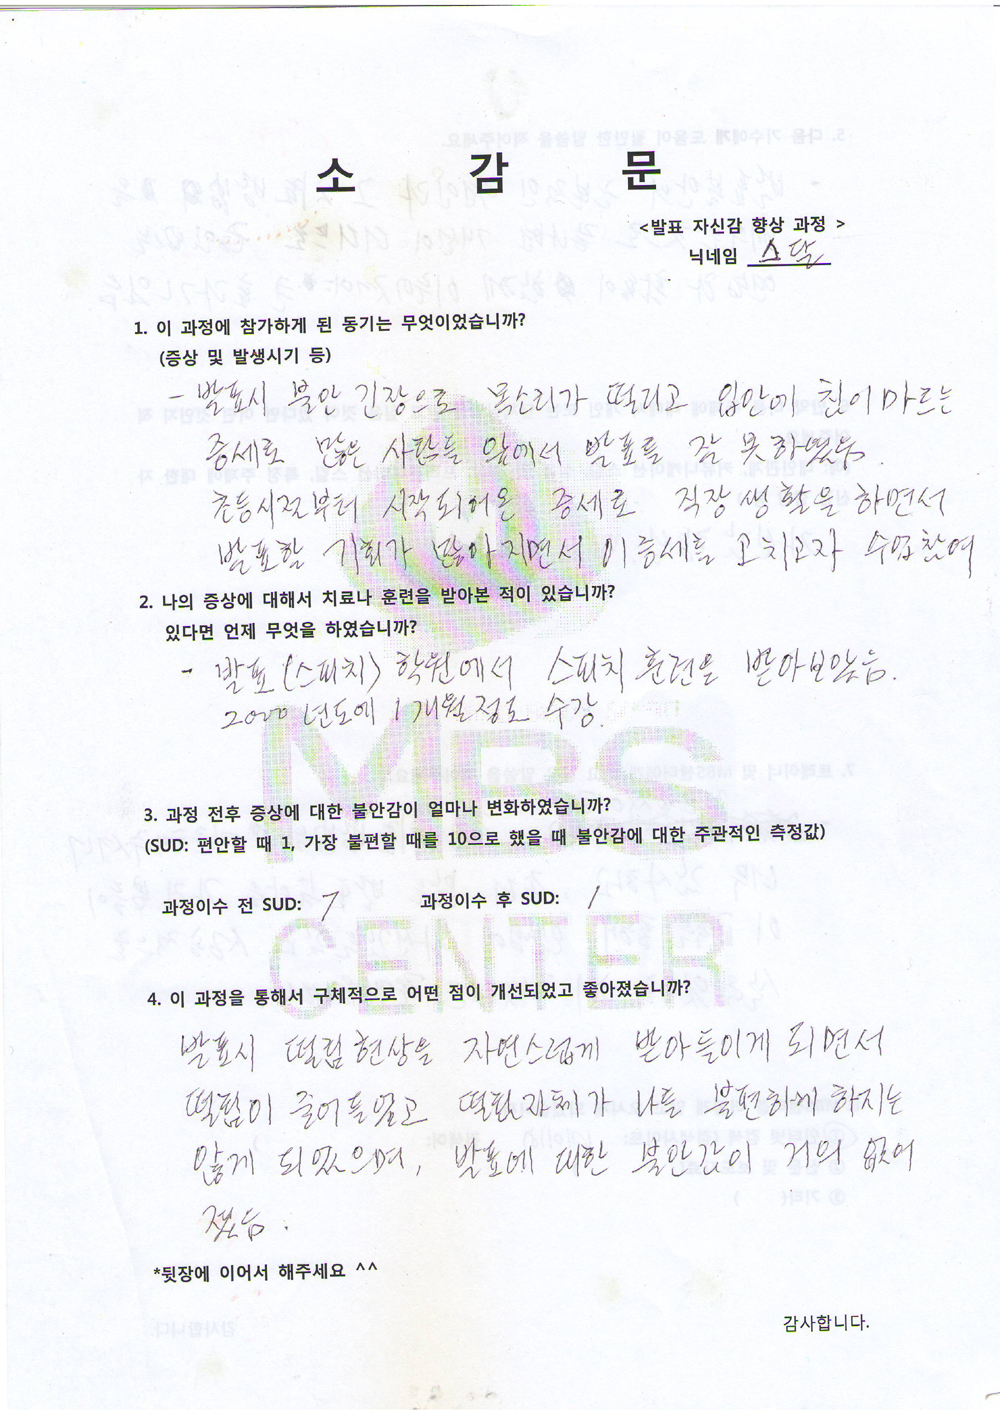 소 감 문
<발표 자신감 향상 과정 >
닉네임 스달
1. 이 과정에 참가하게 된 동기는 무엇이었습니까?
(증상 및 발생시기 등)
- 발표시 불안 긴장으로 목소리가 떨리고 입안에 침이 마르는
증세로 많은 사람들 앞에서 발표를 잘 못하였음.
초등시절부터 시작되어온 증세로 직장생활을 하면서
발표할 기회가 많아지면서 이 증세를 고치고자 수업참여
2. 나의 증상에 대해서 치료나 훈련을 받아본 적이 있습니까?
있다면 언제 무엇을 하였습니까?
- 발표(스피치) 학원에서 스피치 훈련을 받아보았음.
2000년도에 1개월정도 수강.
MBS
CENTER
3. 과정 전후 증상에 대한 불안감이 얼마나 변화하였습니까?
(SUD: 편안할 때 1, 가장 불편할 때를 10으로 했을 때 불안감에 대한 주관적인 측정값)
과정이수 전 SUD: 7 과정이수 후 SUD: 1
4. 이 과정을 통해서 구체적으로 어떤 점이 개선되었고 좋아졌습니까?
발표시 떨림현상을 자연스럽게 받아들이게 되면서
떨림이 줄어들었고 떨림자체가 나를 불편하게 하지는
않게 되었으며, 발표에 대한 불안감이 거의 없어
졌음.
*뒷장에 이어서 해주세요 ^^
감사합니다.